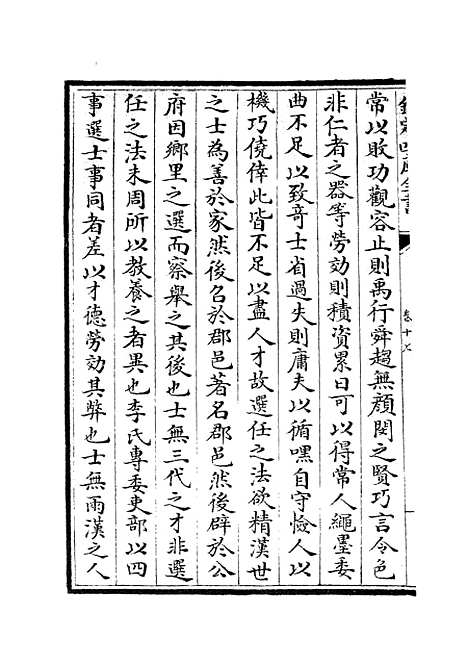 欽定四庫全書
卷十七
常以敗功觀容止則禹行舜趨無顔閔之賢巧言令色
非仁者之器等勞効則積資累日可以得常人繩墨委
曲不足以致竒士省過失則庸夫以循嘿自守憸人以
機巧僥倖此皆不足以盡人才故選任之法欲精漢世
之士為善於家然後名於郡邑著名郡邑然後辟於公
府因鄉里之選而察舉之其後也士無三代之才非選
任之法未周所以教養之者異也李氏專委吏部以四
事選士事同者差以才德勞効其弊也士無兩漢之人